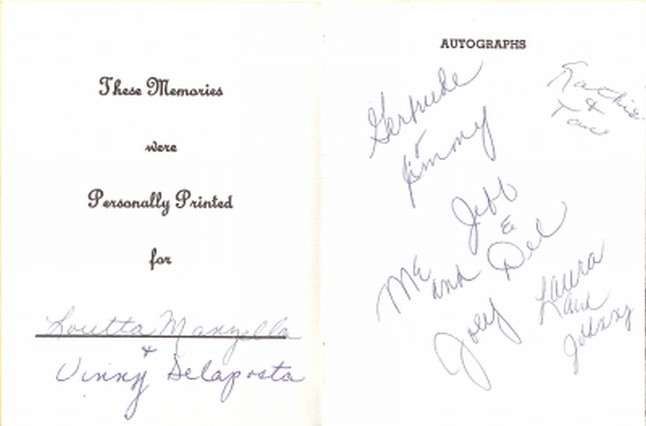 These Memories
were
Personally Printed
for
Loretta Manzella
+
Vinny Delaposta
AUTOGRAPHS
Gertrude
+
Jimmy
Kathie
&
Jeff
&
Del
Me
and
Joey
Laura
and
Johnny